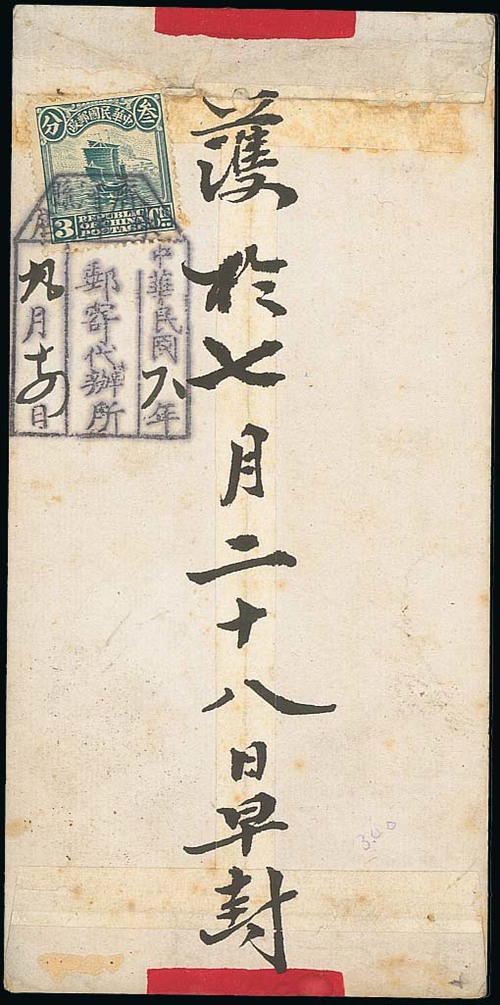 護於七月二十八日早封
叁 中華民國郵政 分
3 REPUBLIC OF CHINA POSTAGE
中華民國六年
郵寄代辦所
九月十四日
3.40